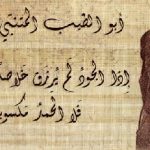 أبو الطيب المتنبي
إِذا الجودُ لَم يُرزَق خَلاصاً
فَلا الحَمدُ مَكسوب